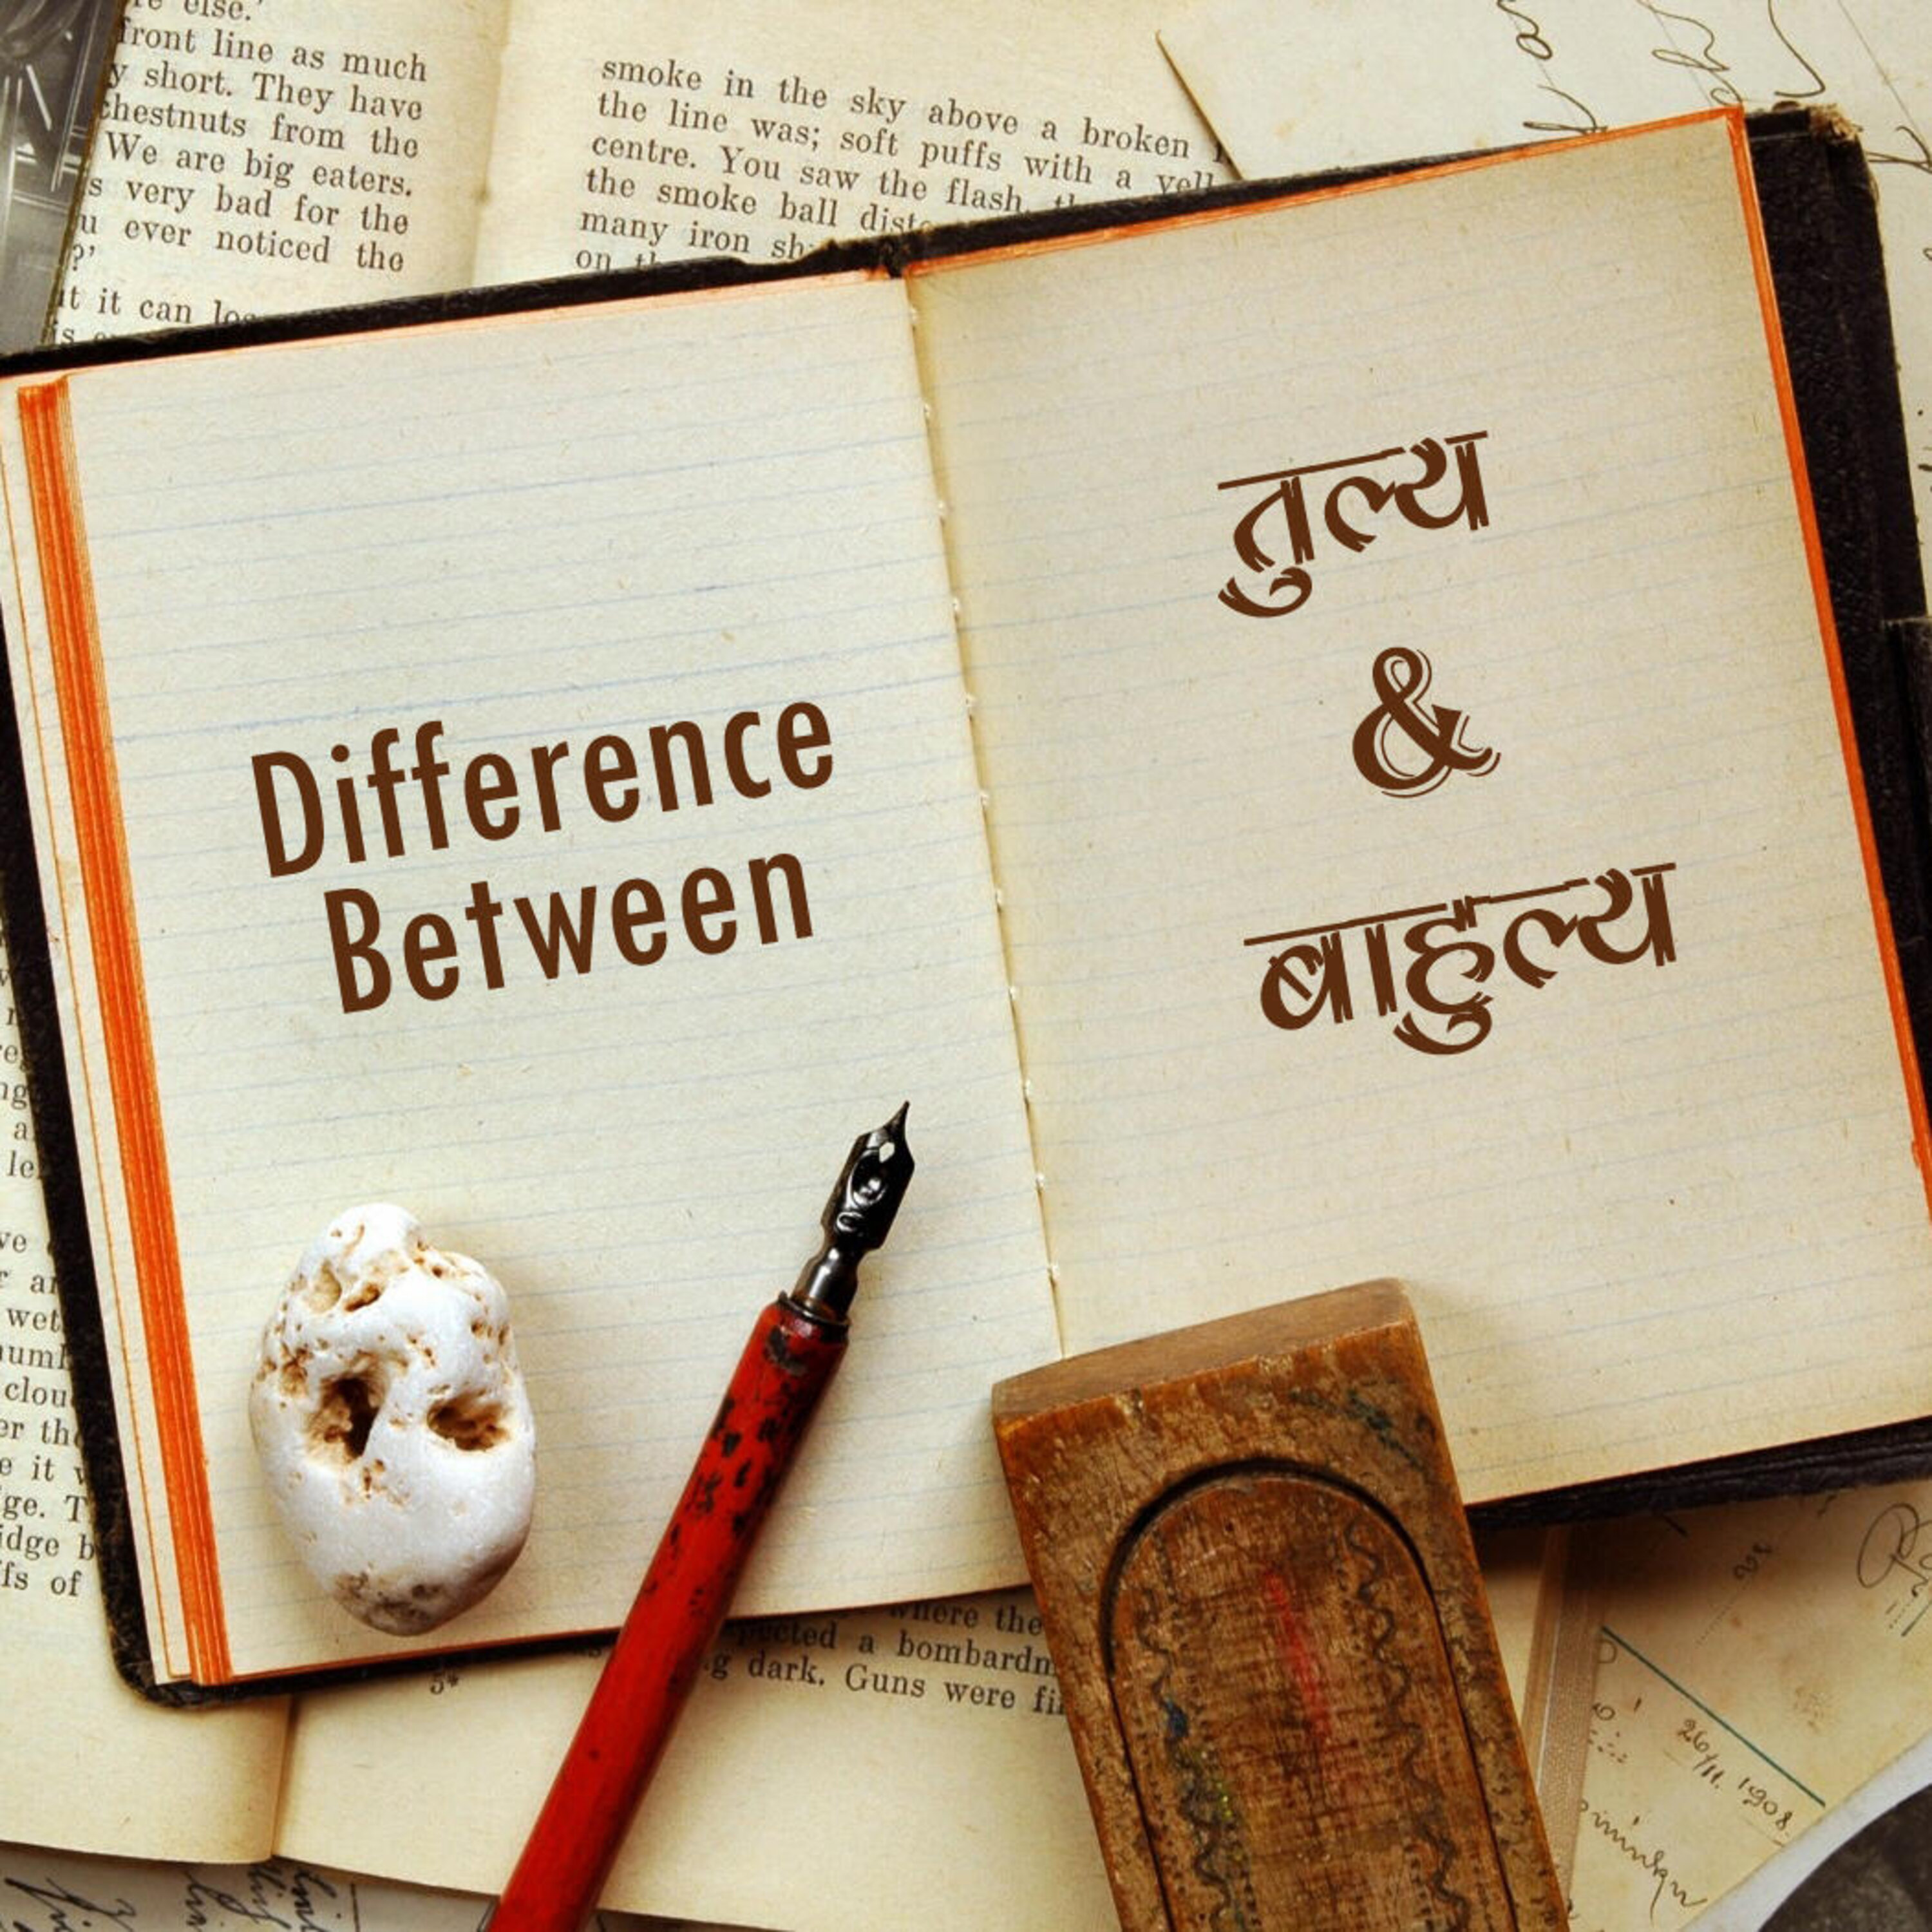 re else.'
front line as much
y short. They have
chestnuts from the
We are big eaters.
s very bad for the
u ever noticed the
?'
it it can
smoke in the sky above a broken
the line was; soft puffs with a
centre. You saw the flash,
the smoke ball
many iron
on
Difference
Between
तुल्य
&
बाहुल्य
where the
a bombardm
g dark. Guns were
5*
wet
clou
er the
e it
ge. T
idge b
fs of
26/11. 1908.